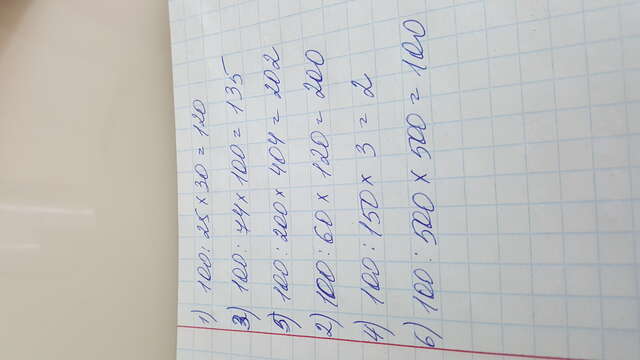 1) 100 : 25 x 30 = 120
3) 100 : 74 x 100 = 135
5) 100 : 200 x 404 = 202
2) 100 : 60 x 120 = 200
4) 100 : 150 x 3 = 2
6) 100 : 500 x 500 = 100